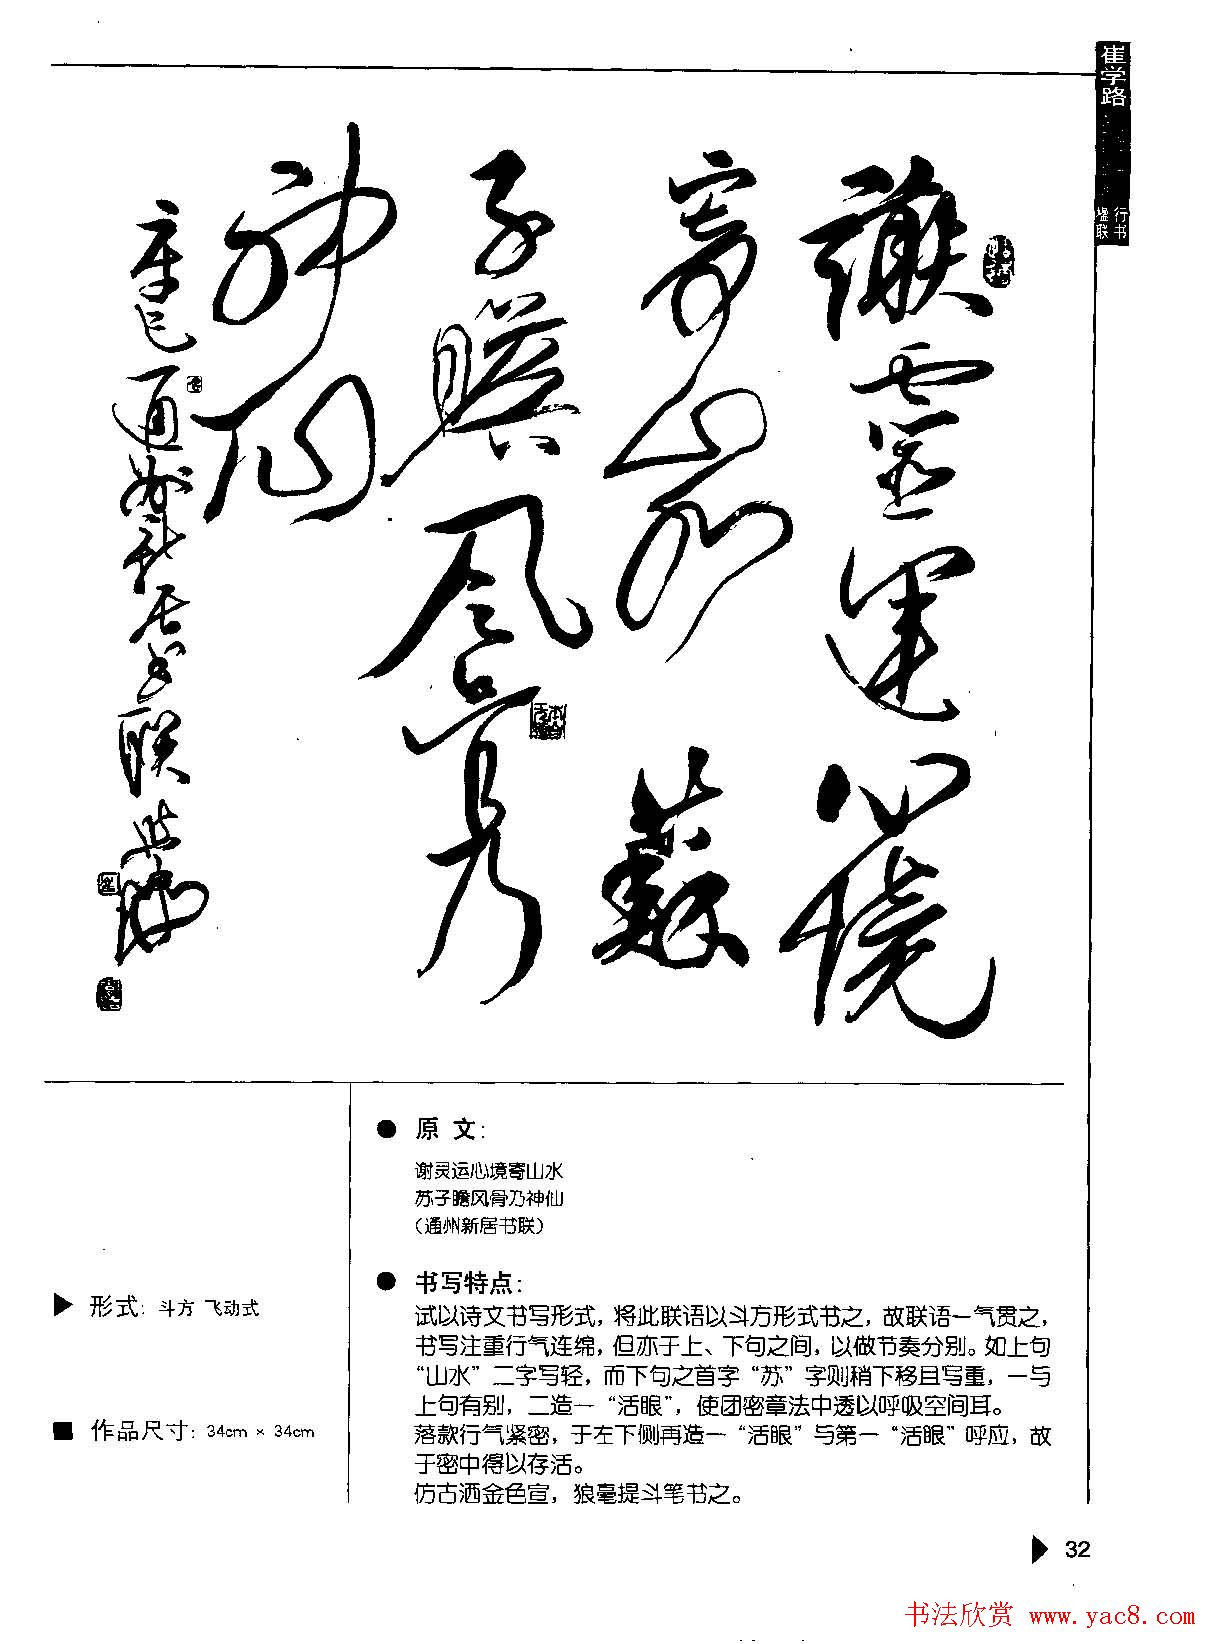 崔学路
行书
楹联
謝靈運心境
寄山水 蘇
子瞻风骨乃
神仙
辛巳通州新居书联 学路
原 文:
谢灵运心境寄山水
苏子瞻风骨乃神仙
(通州新居书联)
形式: 斗方 飞动式
作品尺寸: 34cm × 34cm
书写特点:
试以诗文书写形式, 将此联语以斗方形式书之, 故联语一气贯之,
书写注重行气连绵, 但亦于上、下句之间, 以做节奏分别。如上句
“山水” 二字写轻, 而下句之首字 “苏” 字则稍下移且写重, 一与
上句有别, 二造一 “活眼”, 使团密章法中透以呼吸空间耳。
落款行气紧密, 于左下侧再造一 “活眼” 与第一 “活眼” 呼应, 故
于密中得以存活。
仿古洒金色宣, 狼毫提斗笔书之。
32
书法欣赏 www.yac8.com